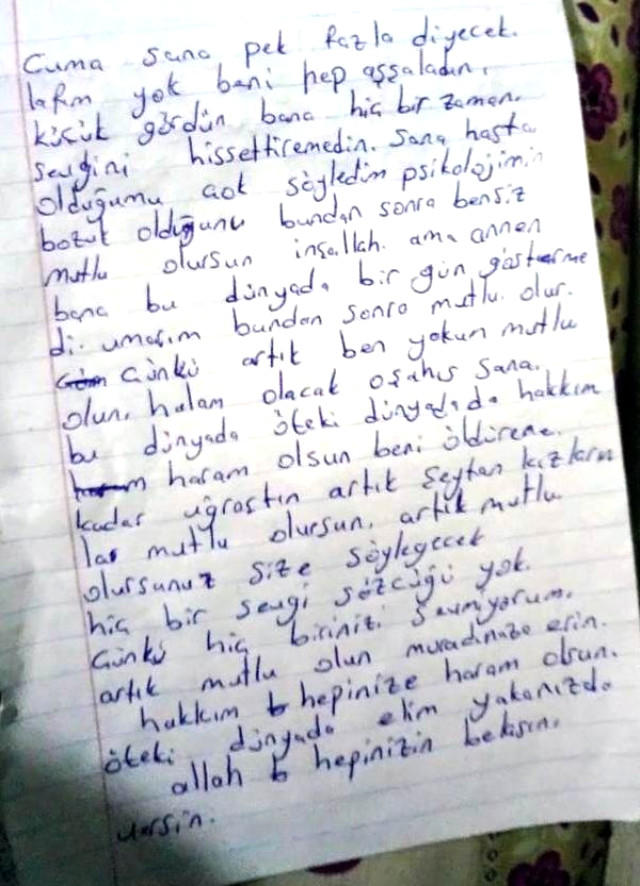 Cuma sana pek fazla diyecek.
lafım yok beni hep aşşaladın,
küçük gördün bana hiç bir zaman.
sevgini hissettiremedin. Sana hasta
olduğumu çok söyledim psikolojimin
bozuk olduğunu bundan sonra bensiz
mutlu olursun inşallah. ama annen
bana bu dünyada bir gün gösterme
di. umarım bundan sonra mutlu olur.
Çünkü artık ben yokun mutlu
olun, halam olacak oşahıs sana.
bu dünyada öteki dünyadada hakkım
haram olsun beni öldürene.
kadar uğraştın artık şeytan kızların
la mutlu olursun. artık mutlu
olursunuz size söyleyecek
hiç bir sevgi sözcüğü yok.
Çünkü hiç birinizi sevmiyorum.
artık mutlu olun muradınıza erin.
hakkım hepinize haram olsun.
öteki dünyada elim yakanızda
allah hepinizin belasın.
versin.